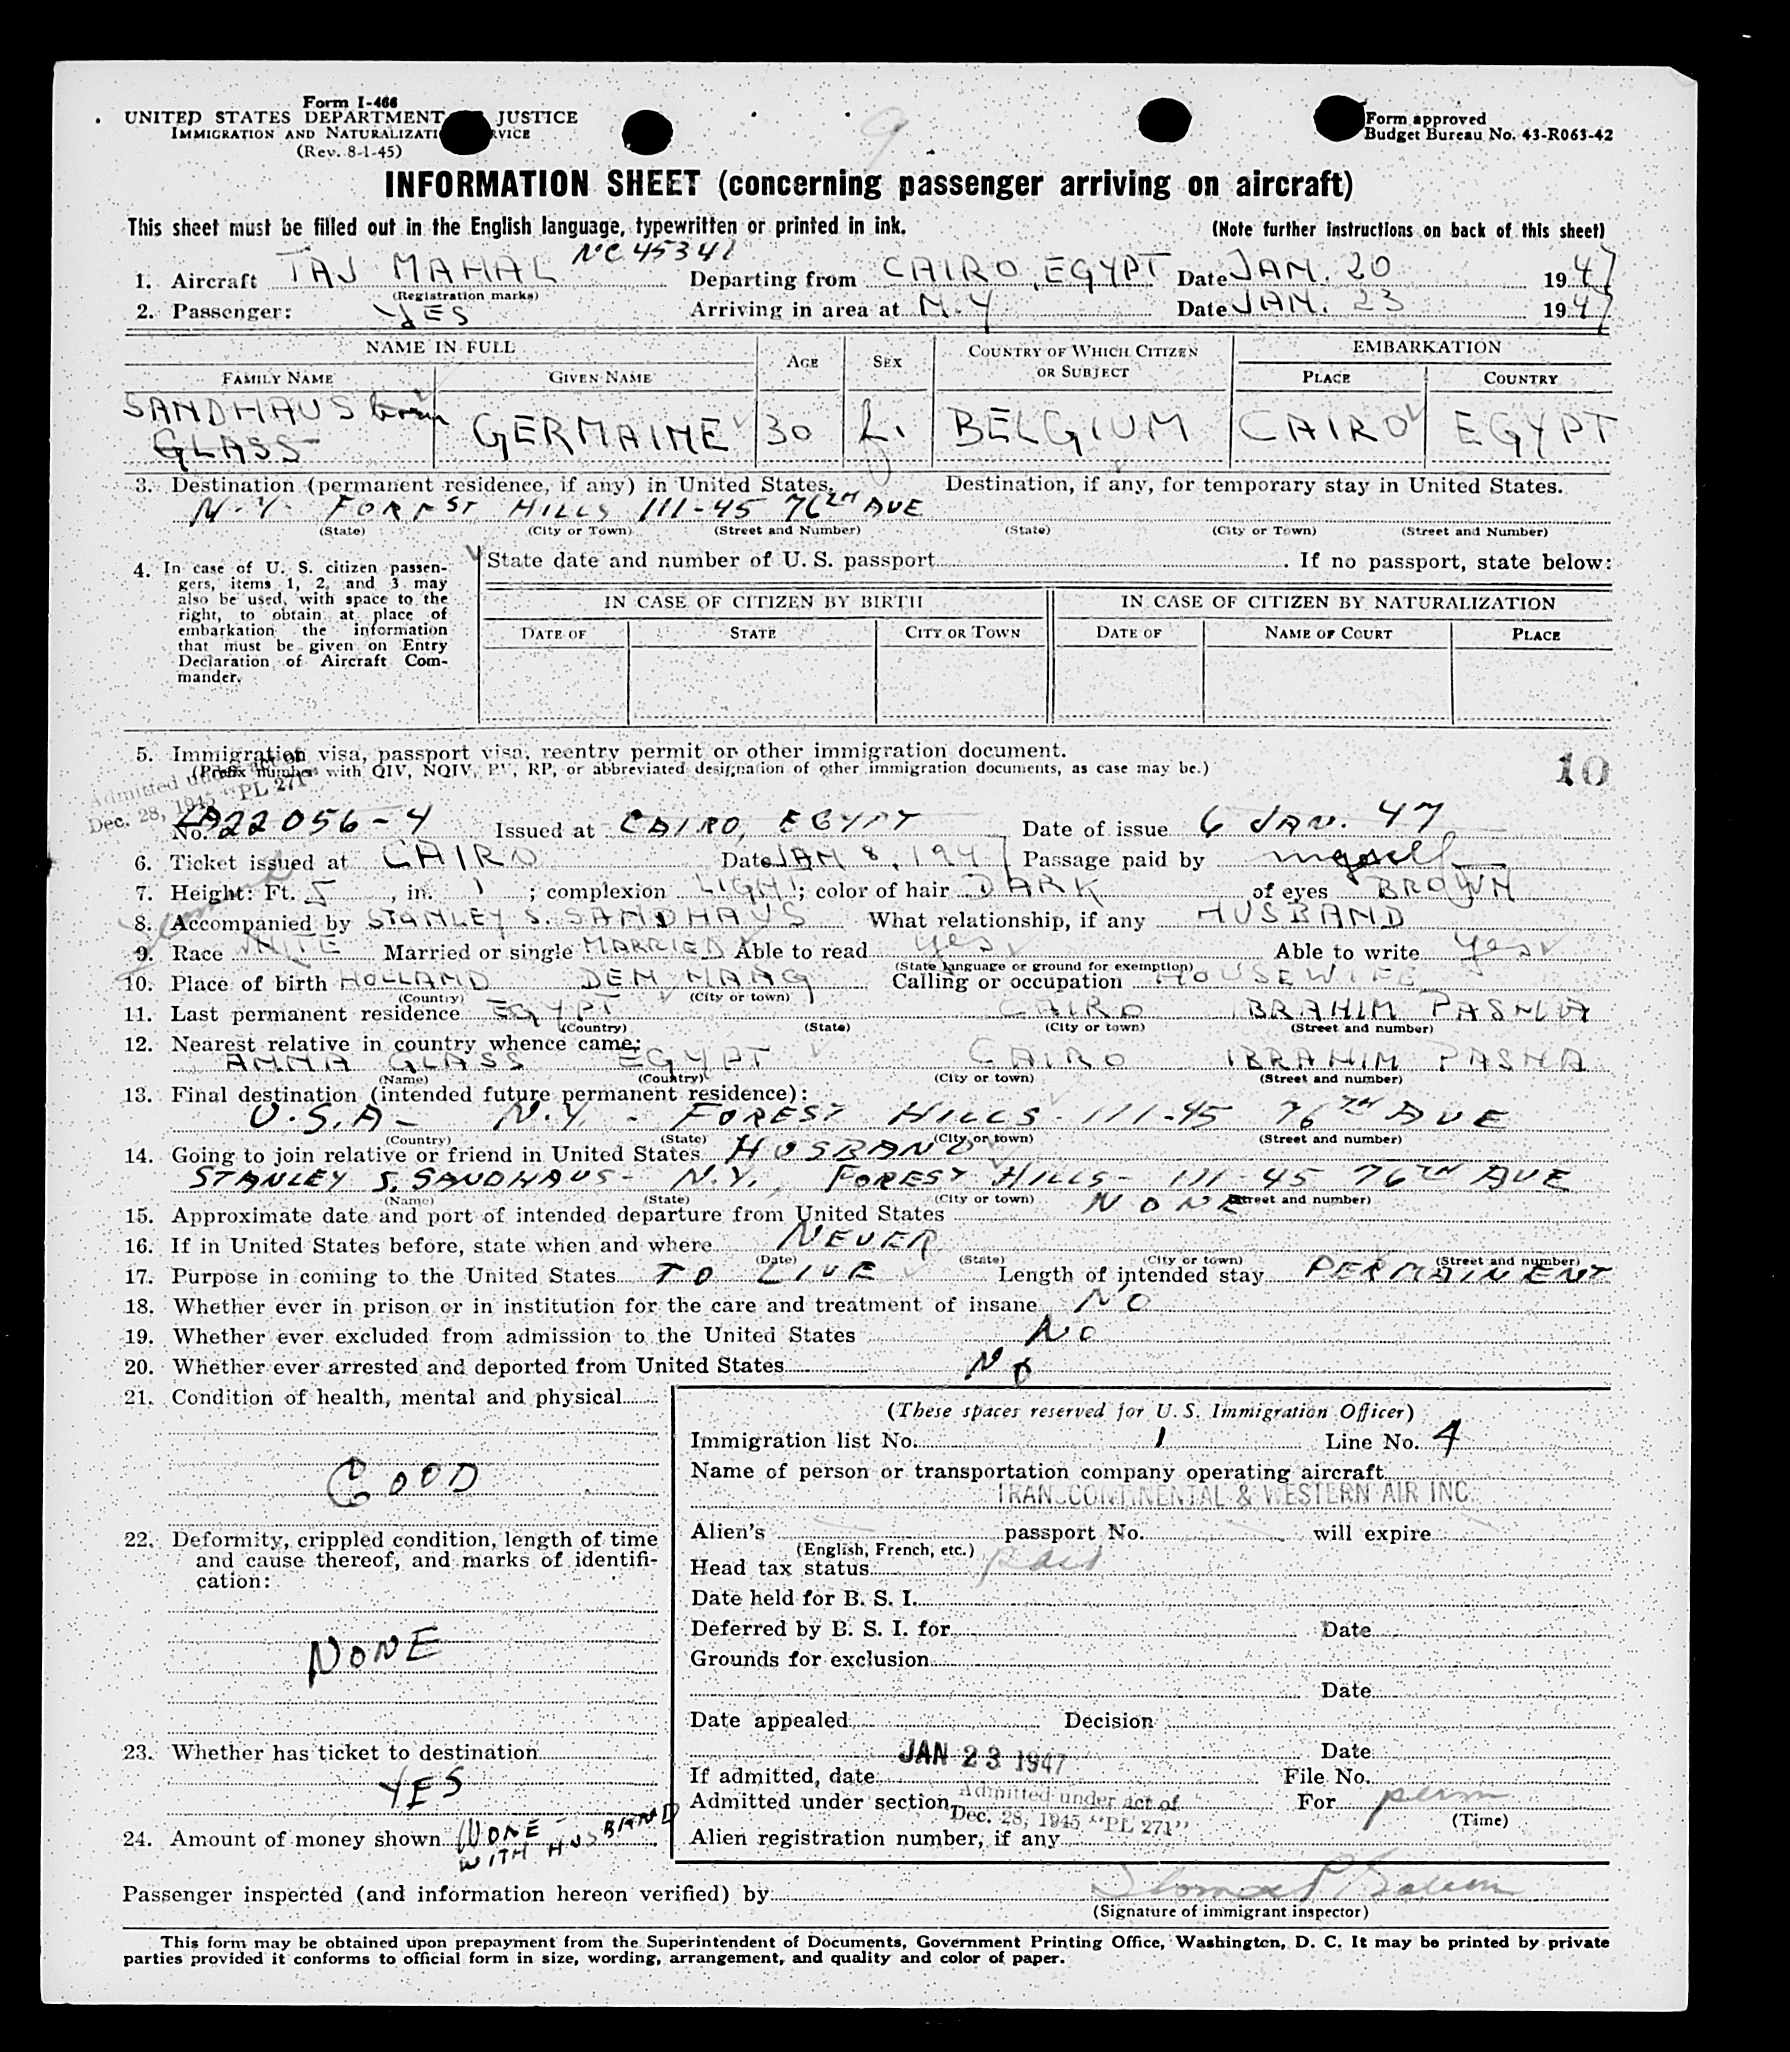 Form I-466
UNITED STATES DEPARTMENT JUSTICE
IMMIGRATION AND NATURALIZATI RVICE
(Rev. 8-1-45)
Form approved
Budget Bureau No. 43-R063-42
INFORMATION SHEET (concerning passenger arriving on aircraft)
This sheet must be filled out in the English language, typewritten or printed in ink. (Note further instructions on back of this sheet)
NC 45341
1. Aircraft TAJ MAHAL Departing from CAIRO, EGYPT Date JAN. 20 1947
(Registration marks)
2. Passenger: YES Arriving in area at N.Y Date JAN. 23 1947
NAME IN FULL AGE SEX COUNTRY OF WHICH CITIZEN OR SUBJECT EMBARKATION
FAMILY NAME GIVEN NAME PLACE COUNTRY
SANDHAUS born
GLASS GERMAINE 30 f. BELGIUM CAIRO EGYPT
3. Destination (permanent residence, if any) in United States. Destination, if any, for temporary stay in United States.
N.Y. FOREST HILLS 111-45 76TH AVE
(State) (City or Town) (Street and Number) (State) (City or Town) (Street and Number)
4. In case of U. S. citizen passen-
gers, items 1, 2, and 3 may
also be used, with space to the
right, to obtain at place of
embarkation the information
that must be given on Entry
Declaration of Aircraft Com-
mander.
State date and number of U. S. passport. If no passport, state below:
IN CASE OF CITIZEN BY BIRTH IN CASE OF CITIZEN BY NATURALIZATION
DATE OF STATE CITY OR TOWN DATE OF NAME OF COURT PLACE
5. Immigration visa, passport visa, reentry permit or other immigration document.
(Prefix number with QIV, NQIV, PV, RP, or abbreviated designation of other immigration documents, as case may be.)
10
Admitted under act of
Dec. 28, 1945 "PL 271"
No. 22056-4 Issued at CAIRO, EGYPT Date of issue 6 JAN. 47
6. Ticket issued at CAIRO Date JAN 8, 1947 Passage paid by myself
7. Height: Ft. 5, in. 1; complexion LIGHT; color of hair DARK of eyes BROWN
8. Accompanied by STANLEY S. SANDHAUS What relationship, if any HUSBAND
9. Race WHITE Married or single MARRIED Able to read yes Able to write yes
(State language or ground for exemption)
10. Place of birth HOLLAND DEN HAAG Calling or occupation HOUSEWIFE
(Country) (City or town)
11. Last permanent residence EGYPT CAIRO IBRAHIM PASHA
(Country) (State) (City or town) (Street and number)
12. Nearest relative in country whence came:
ANNA GLASS EGYPT CAIRO IBRAHIM PASHA
(Name) (Country) (City or town) (Street and number)
13. Final destination (intended future permanent residence):
U.S.A- N.Y. - FOREST HILLS- 111-45 76TH AVE
(Country) (State) (City or town) (Street and number)
14. Going to join relative or friend in United States HUSBAND
STANLEY S. SANDHAUS- N.Y., FOREST HILLS- 111-45 76TH AVE
(Name) (State) (City or town) (Street and number)
15. Approximate date and port of intended departure from United States NONE
16. If in United States before, state when and where NEVER
(Date) (State) (City or town) (Street and number)
17. Purpose in coming to the United States TO LIVE Length of intended stay PERMAINENT
18. Whether ever in prison or in institution for the care and treatment of insane NO
19. Whether ever excluded from admission to the United States NO
20. Whether ever arrested and deported from United States NO
21. Condition of health, mental and physical
GOOD
22. Deformity, crippled condition, length of time
and cause thereof, and marks of identifi-
cation:
NONE
23. Whether has ticket to destination
YES
24. Amount of money shown NONE -
WITH HUSBAND
(These spaces reserved for U. S. Immigration Officer)
Immigration list No. 1 Line No. 4
Name of person or transportation company operating aircraft
TRANSCONTINENTAL & WESTERN AIR INC.
Alien's passport No. will expire
(English, French, etc.)
Head tax status paid
Date held for B. S. I.
Deferred by B. S. I. for Date
Grounds for exclusion
Date
Date appealed Decision
Date
JAN 23 1947
If admitted, date File No.
Admitted under section Admitted under act of For perm
Dec. 28, 1945 "PL 271"
(Time)
Alien registration number, if any
Passenger inspected (and information hereon verified) by
(Signature of immigrant inspector)
This form may be obtained upon prepayment from the Superintendent of Documents, Government Printing Office, Washington, D. C. It may be printed by private
parties provided it conforms to official form in size, wording, arrangement, and quality and color of paper.